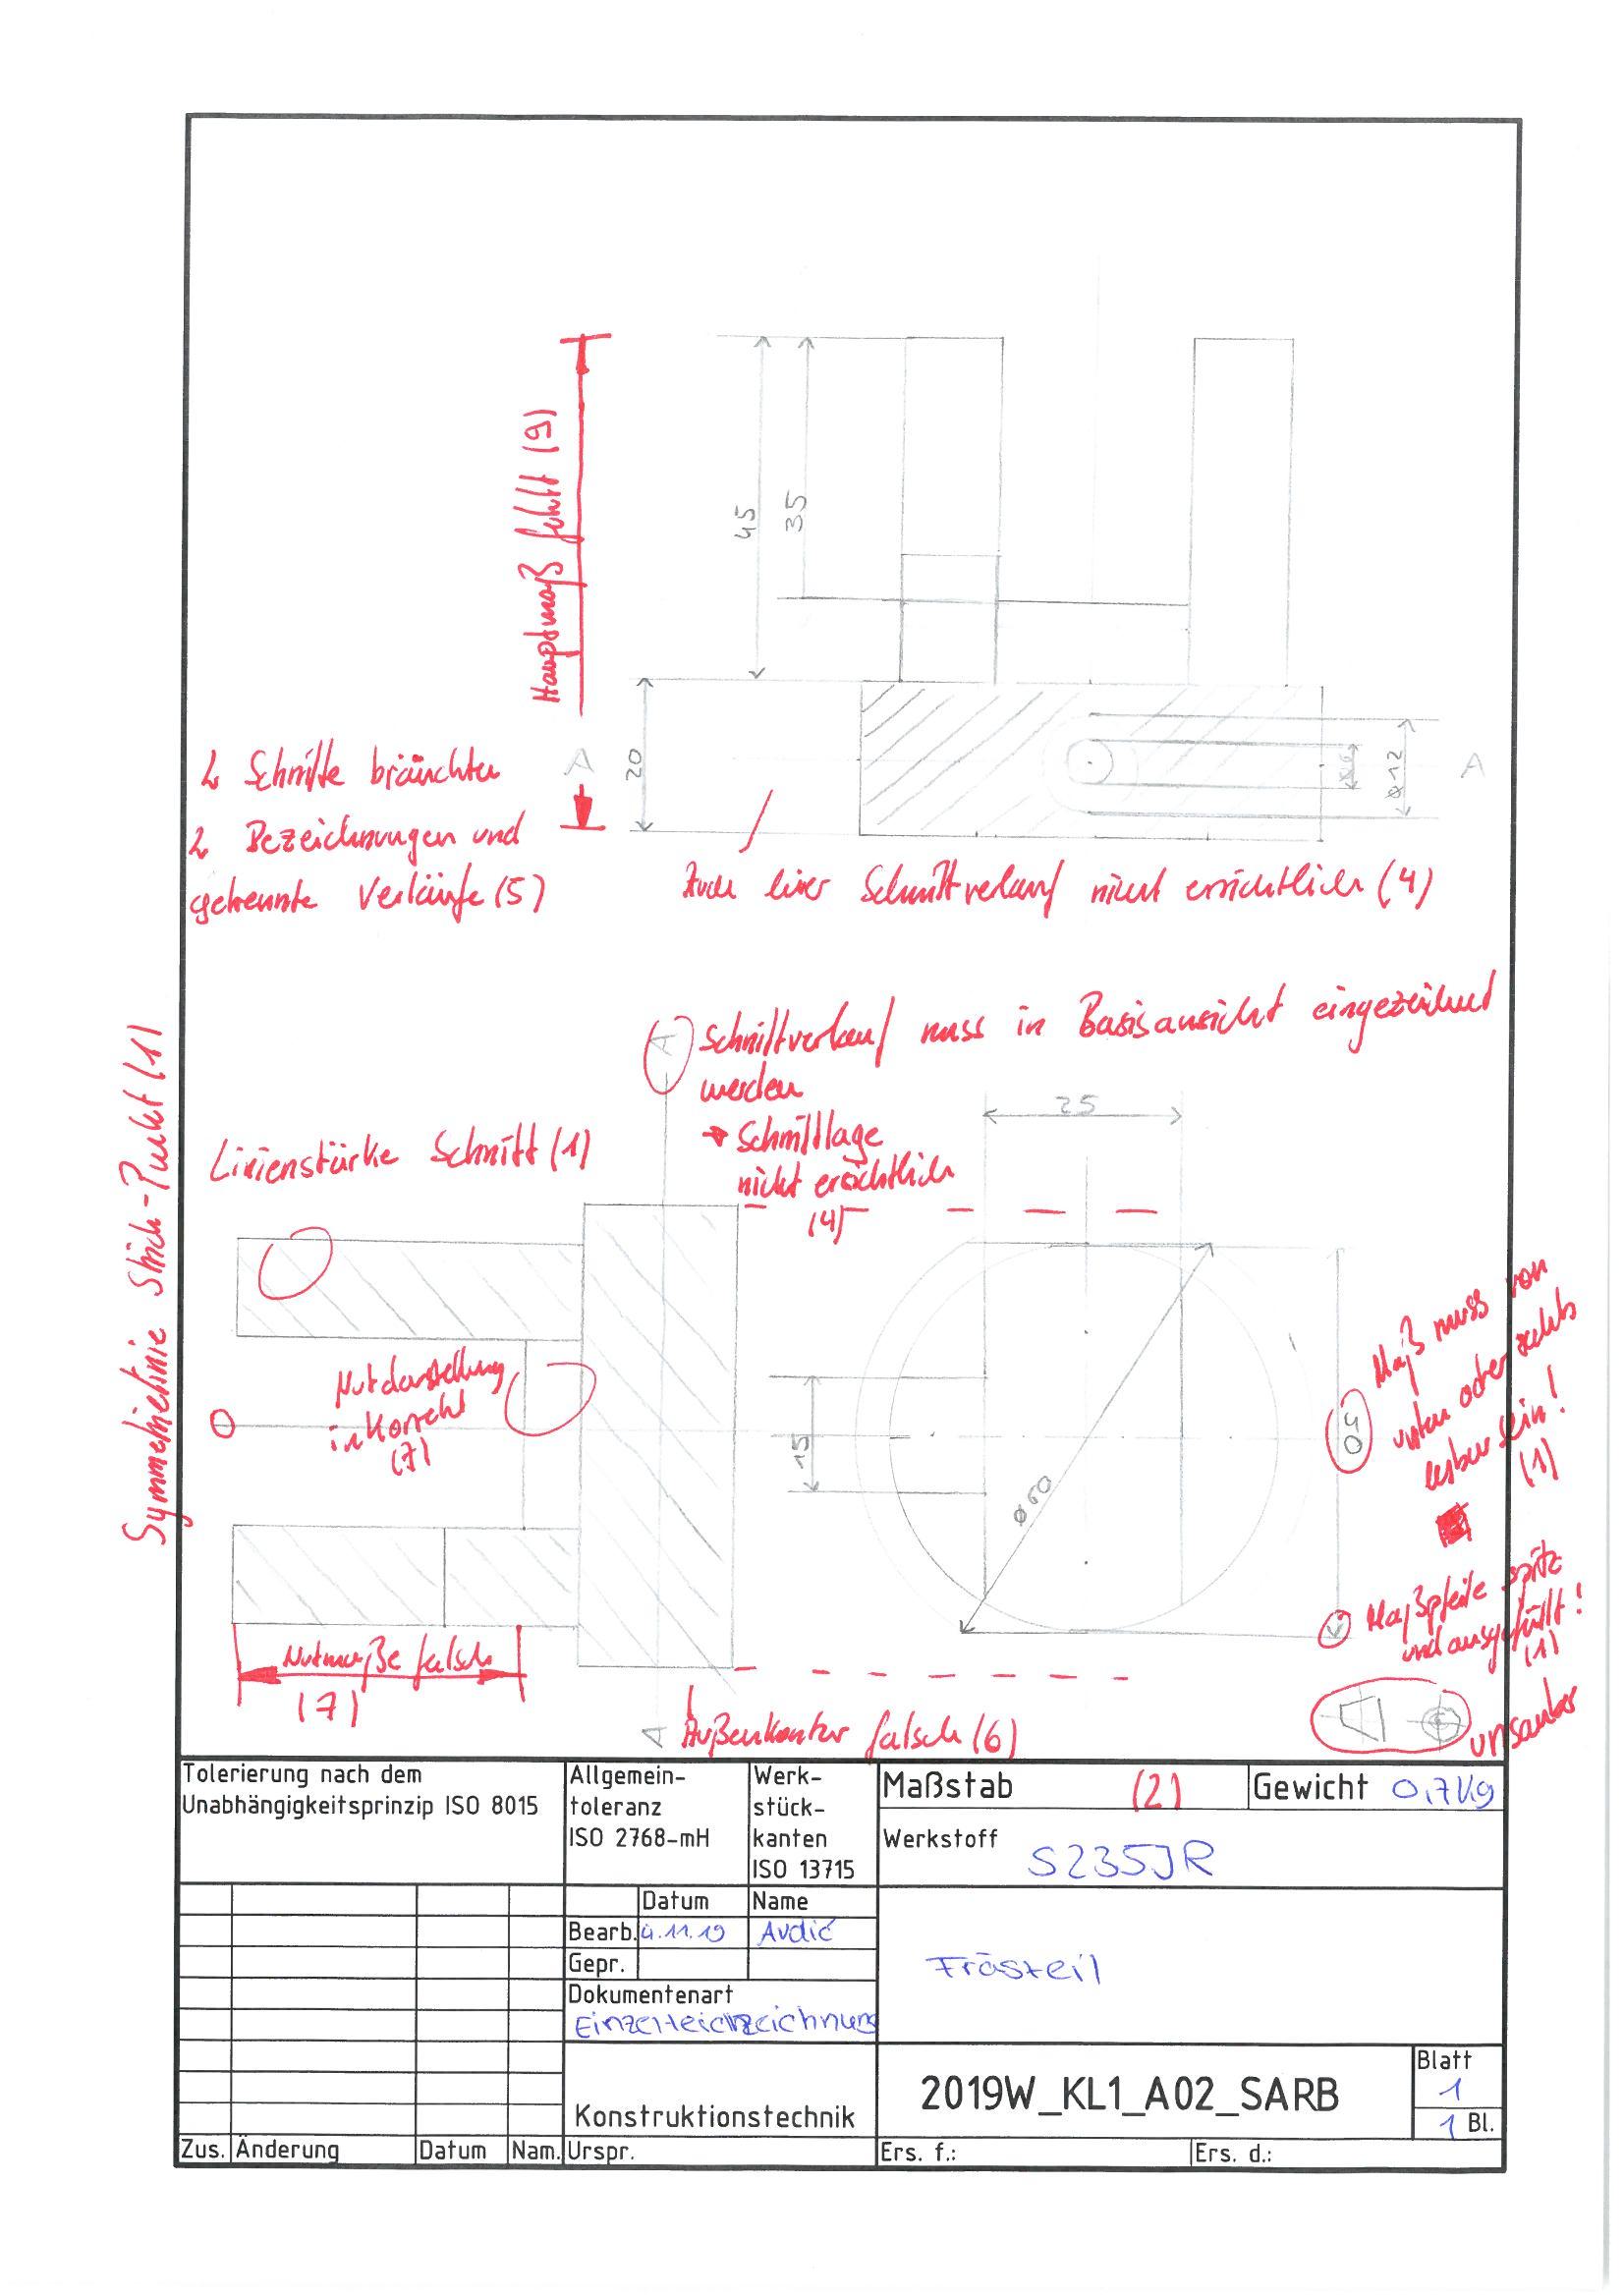 Hauptmaß fehlt (9)
45
35
20
A
⌀12
A
2 Schnitte bräuchten
2 Bezeichnungen und
getrennte Verläufe (5)
Auch hier Schnittverlauf nicht ersichtlich (4)
A
Schnittverlauf muss in Basisansicht eingezeichnet
werden
→ Schnittlage
nicht ersichtlich
(4)
Symmetrielinie Strich-Punkt (1)
Linienstärke Schnitt (1)
25
Nutdarstellung
inkorrekt
(7)
15
⌀60
Maß muss von
unten oder rechts
lesbar sein!
(1)
Maßpfeile spitz
und ausgefüllt!
(1)
Nutmaße falsch
(7)
A
Außenkontur falsch (6)
unsauber
Tolerierung nach dem
Unabhängigkeitsprinzip ISO 8015
Allgemein-
toleranz
ISO 2768-mH
Werk-
stück-
kanten
ISO 13715
Maßstab
(2)
Gewicht 0,7kg
Werkstoff
S235JR
Datum Name
Bearb. 4.11.19 Avdić
Gepr.
Dokumentenart
Frästeil
Konstruktionstechnik
2019W_KL1_A02_SARB
Blatt
1
1 Bl.
Zus. Änderung Datum Nam. Urspr. Ers. f.: Ers. d.: